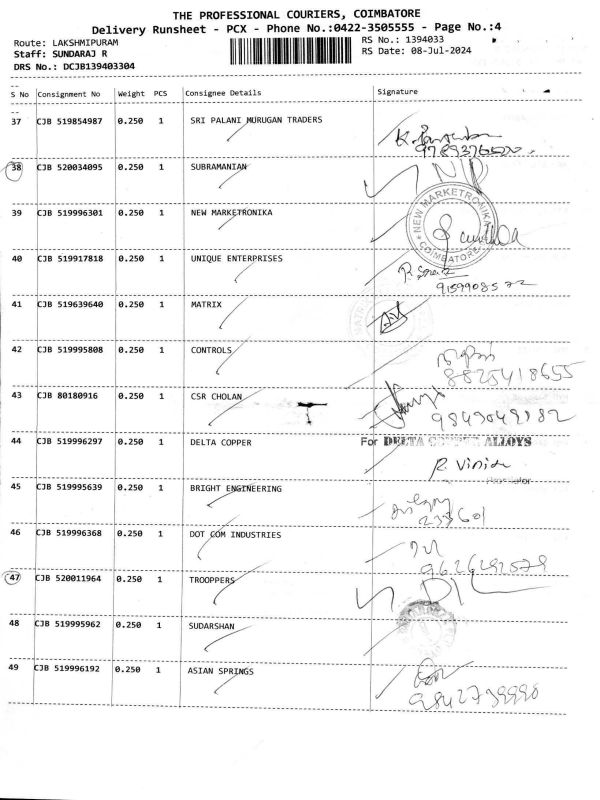 THE PROFESSIONAL COURIERS, COIMBATORE
Delivery Runsheet - PCX - Phone No.:0422-3505555 - Page No.:4
Route: LAKSHMIPURAM RS No.: 1394033
Staff: SUNDARAJ R RS Date: 08-Jul-2024
DRS No.: DCJB139403304
S No Consignment No Weight PCS Consignee Details Signature
37 CJB 519854987 0.250 1 SRI PALANI MURUGAN TRADERS
38 CJB 520034095 0.250 1 SUBRAMANIAN
39 CJB 519996301 0.250 1 NEW MARKETRONIKA
NEW MARKETRONIKA
COIMBATORE
40 CJB 519917818 0.250 1 UNIQUE ENTERPRISES
41 CJB 519639640 0.250 1 MATRIX
42 CJB 519995808 0.250 1 CONTROLS
8825418655
43 CJB 80180916 0.250 1 CSR CHOLAN
9843049182
44 CJB 519996297 0.250 1 DELTA COPPER For DELTA COPPER ALLOYS
45 CJB 519995639 0.250 1 BRIGHT ENGINEERING
46 CJB 519996368 0.250 1 DOT COM INDUSTRIES
9626292579
47 CJB 520011964 0.250 1 TROOPPERS
48 CJB 519995962 0.250 1 SUDARSHAN
49 CJB 519996192 0.250 1 ASIAN SPRINGS
9842739998